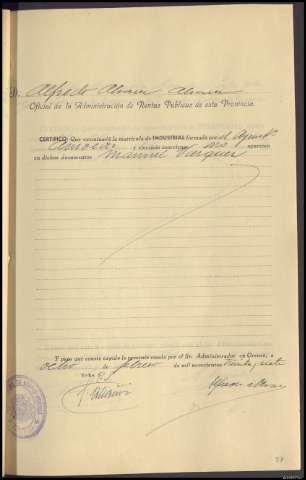 D. Alfredo Alvarez Alvarez
Oficial de la Administración de Rentas Públicas de esta Provincia.
CERTIFICO: Que examinada la matrícula de INDUSTRIAL formada por el Ayuntº
y ejercicio aparecen
en dichos documentos Manuel Vazquez
Y para que conste expido la presente visada por el Sr. Administrador en Orense, a
ocho de febrero de mil novecientos treinta y siete
V.º B.º